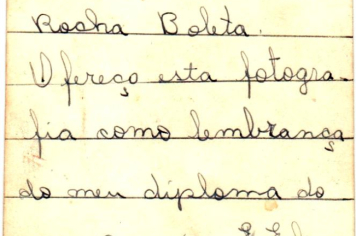 Rocha Boleta.
Ofereço esta fotogra-
fia como lembrança
do meu diploma do